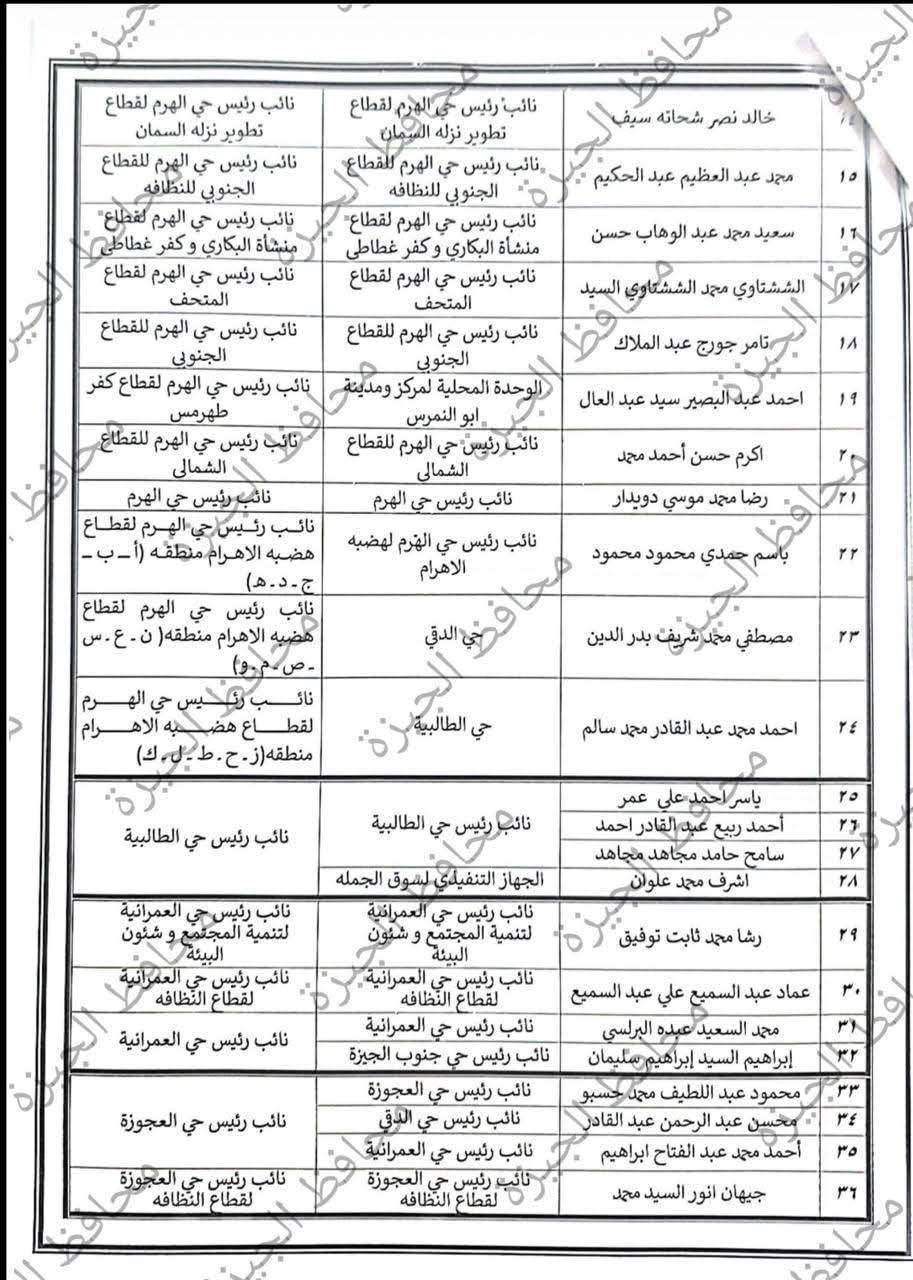 ١٤ خالد نصر شحاته سيف نائب رئيس حي الهرم لقطاع نائب رئيس حي الهرم لقطاع
تطوير نزله السمان تطوير نزله السمان
١٥ محمد عبد العظيم عبد الحكيم نائب رئيس حي الهرم للقطاع نائب رئيس حي الهرم للقطاع
الجنوبي للنظافه الجنوبي للنظافه
١٦ سعيد محمد عبد الوهاب حسن نائب رئيس حي الهرم لقطاع نائب رئيس حي الهرم لقطاع
منشأة البكاري و كفر غطاطى منشأة البكاري و كفر غطاطى
١٧ الششتاوي محمد الششتاوي السيد نائب رئيس حي الهرم لقطاع نائب رئيس حي الهرم لقطاع
المتحف المتحف
١٨ تامر جورج عبد الملاك نائب رئيس حي الهرم للقطاع نائب رئيس حي الهرم للقطاع
الجنوبي الجنوبي
١٩ احمد عبد البصير سيد عبد العال الوحدة المحلية لمركز ومدينة نائب رئيس حي الهرم لقطاع كفر
ابو النمرس طهرمس
٢٠ اكرم حسن أحمد محمد نائب رئيس حي الهرم للقطاع نائب رئيس حي الهرم للقطاع
الشمالى الشمالى
٢١ رضا محمد موسي دويدار نائب رئيس حي الهرم نائب رئيس حي الهرم
٢٢ باسم حمدي محمود محمود نائب رئيس حي الهرم لهضبه نائب رئيس حي الهرم لقطاع
الاهرام هضبه الاهرام منطقه (أ - ب -
ج - د - ه)
٢٣ مصطفي محمد شريف بدر الدين حي الدقي نائب رئيس حي الهرم لقطاع
هضبه الاهرام منطقه( ن - ع - س
- ص - م - و)
٢٤ احمد محمد عبد القادر محمد سالم حي الطالبية نائب رئيس حي الهرم
لقطاع هضبه الاهرام
منطقه(ز - ح - ط - ل - ك)
٢٥ ياسر احمد علي عمر
٢٦ أحمد ربيع عبد القادر احمد نائب رئيس حي الطالبية نائب رئيس حي الطالبية
٢٧ سامح حامد مجاهد مجاهد
٢٨ اشرف محمد علوان الجهاز التنفيذي لسوق الجمله
٢٩ رشا محمد ثابت توفيق نائب رئيس حي العمرانية نائب رئيس حي العمرانية
لتنمية المجتمع و شئون لتنمية المجتمع و شئون
البيئة البيئة
٣٠ عماد عبد السميع علي عبد السميع نائب رئيس حي العمرانية نائب رئيس حي العمرانية
لقطاع النظافه لقطاع النظافه
٣١ محمد السعيد عبده البرلسي نائب رئيس حي العمرانية نائب رئيس حي العمرانية
٣٢ إبراهيم السيد إبراهيم سليمان نائب رئيس حي جنوب الجيزة
٣٣ محمود عبد اللطيف محمد حسبو نائب رئيس حي العجوزة
٣٤ محسن عبد الرحمن عبد القادر نائب رئيس حي الدقي نائب رئيس حي العجوزة
٣٥ أحمد محمد عبد الفتاح ابراهيم نائب رئيس حي العمرانية
٣٦ جيهان انور السيد محمد نائب رئيس حي العجوزة نائب رئيس حي العجوزة
لقطاع النظافه لقطاع النظافه
محافظ الجيزة